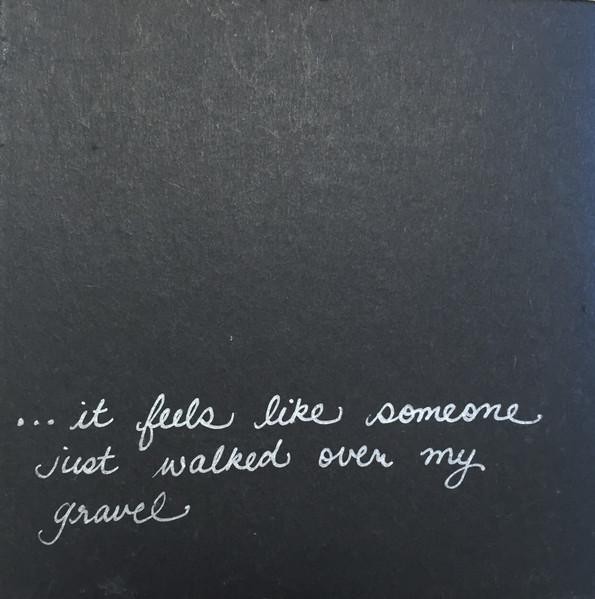 ... it feels like someone
just walked over my
gravel